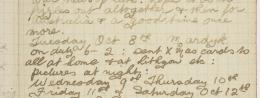 altogether & then for
Australia & a good time once
more.
Tuesday Oct 8th Mardyk
on duty 6-2 : sent Xmas cards to
all at home & at Lithgow etc :
pictures at night :
Wednesday 9th Thursday 10th
Friday 11th & Saturday Oct 12th